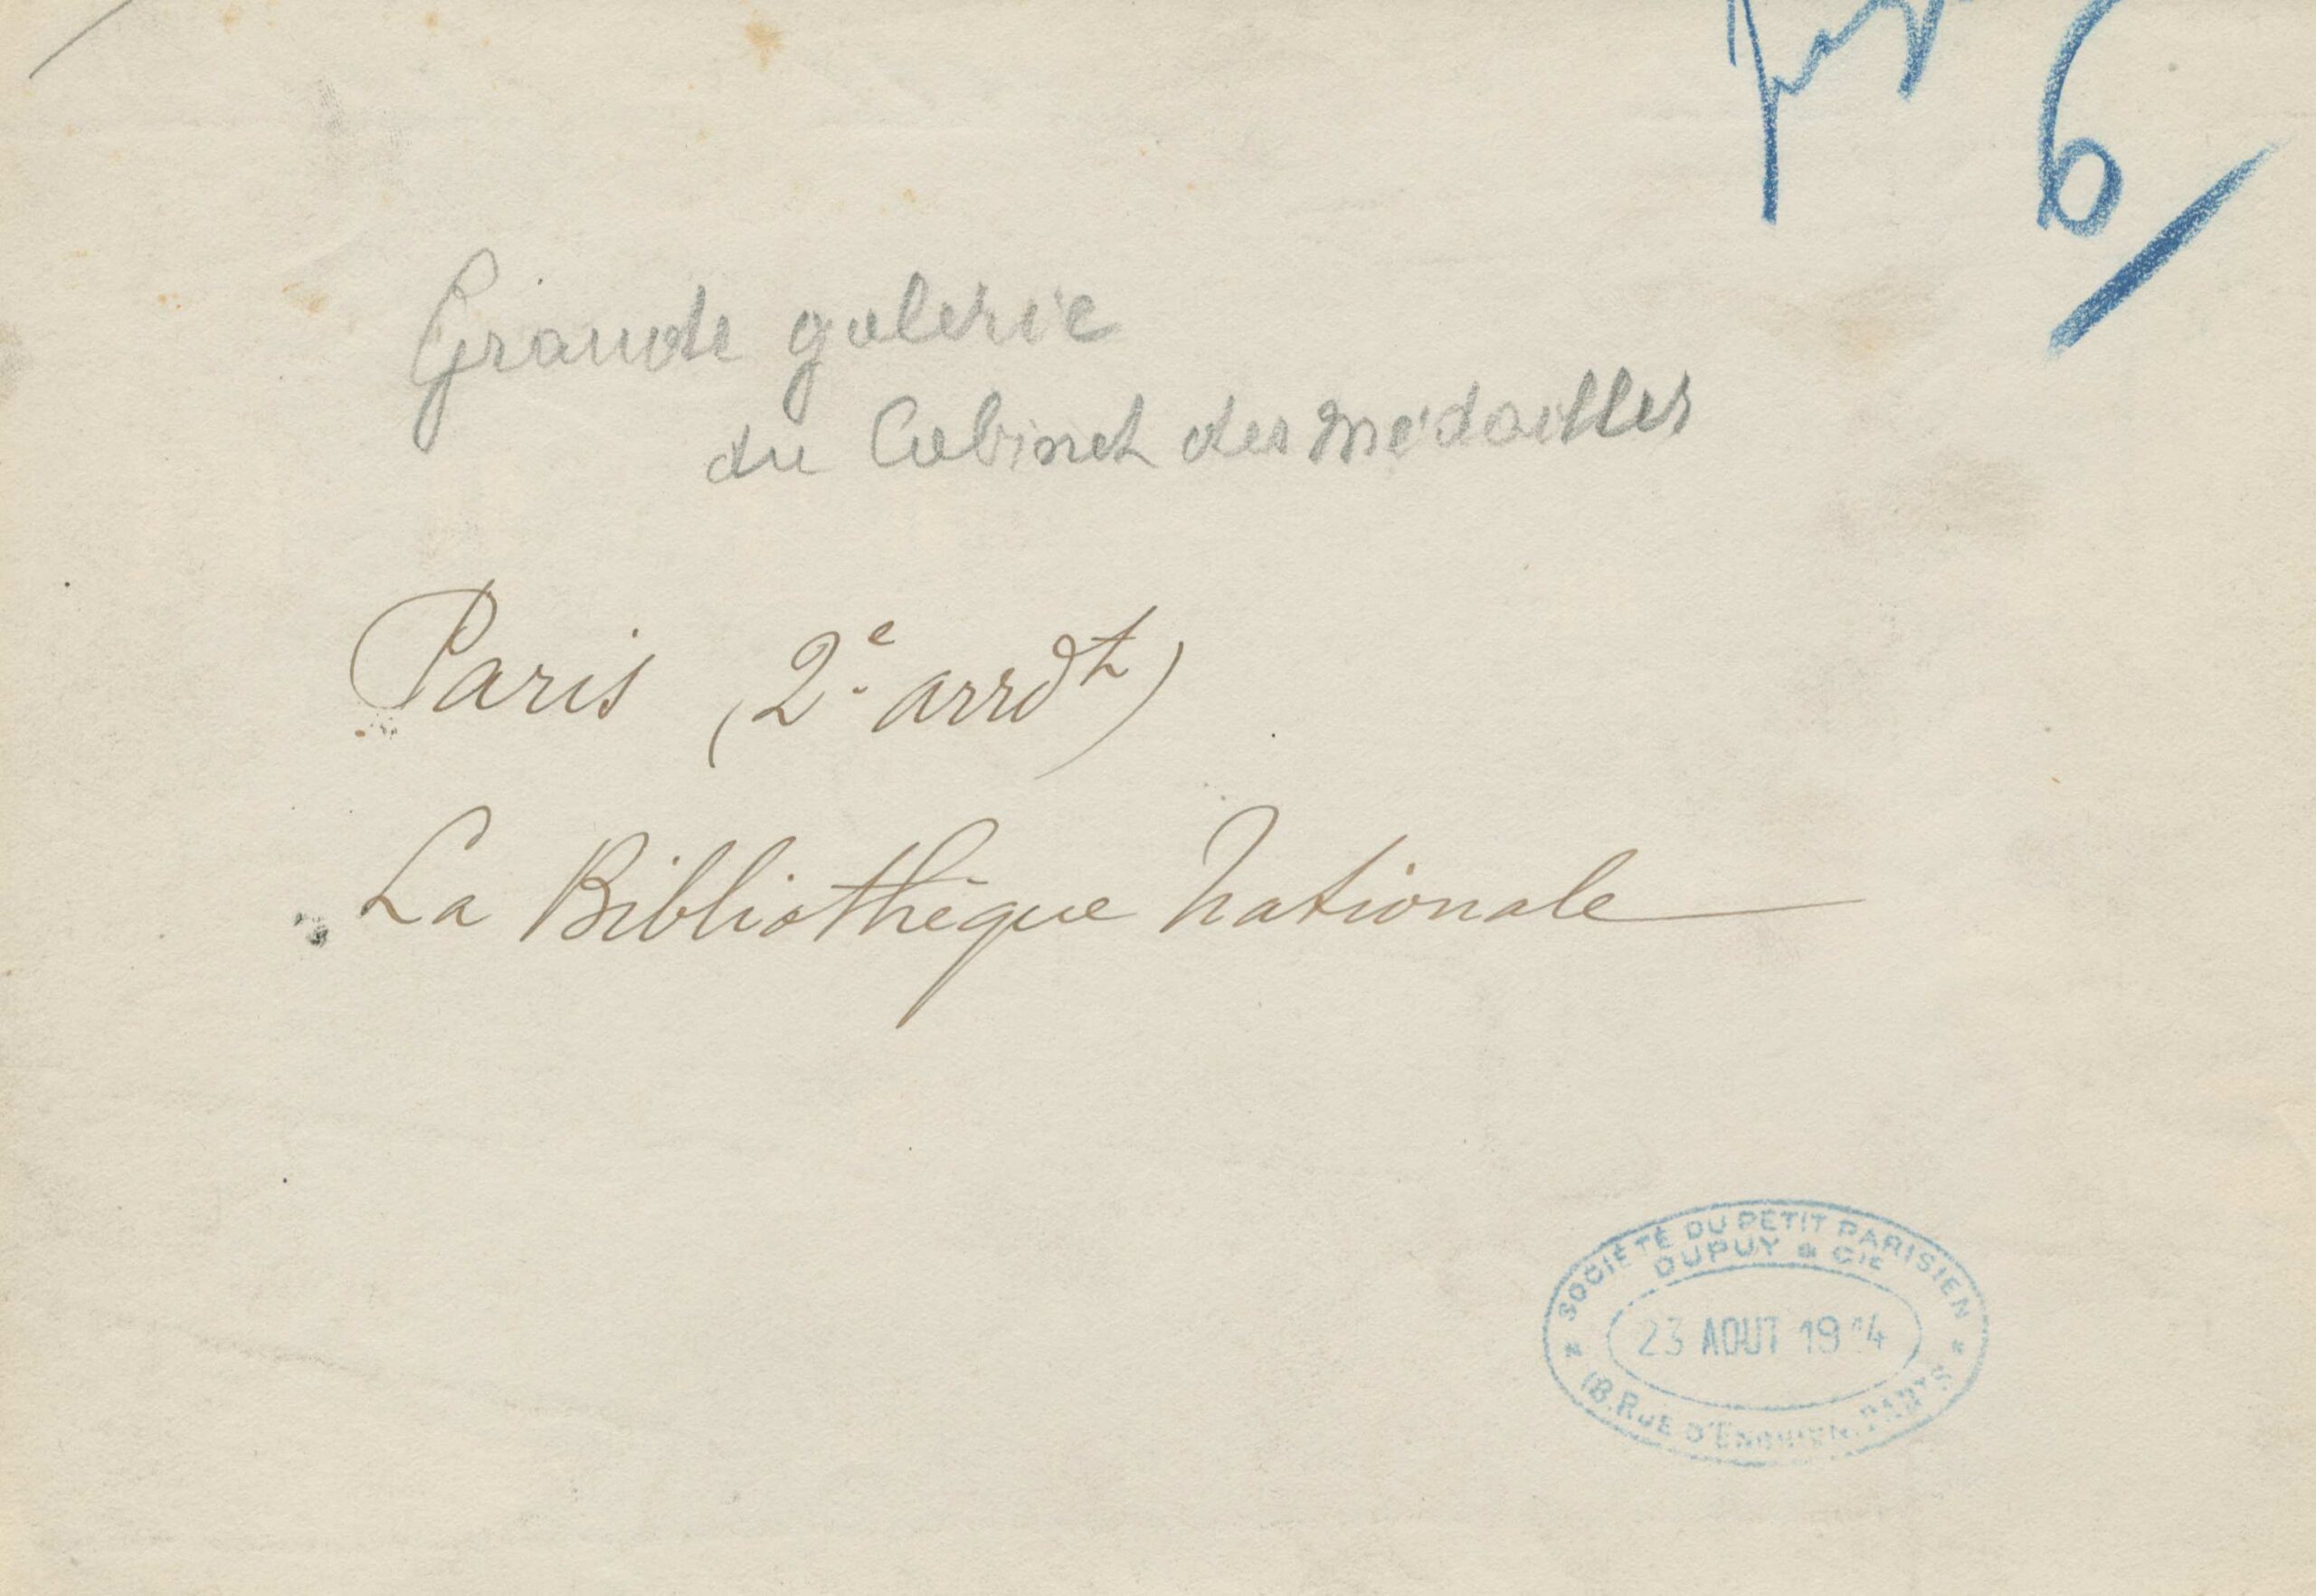 6
Grande galerie
du Cabinet des Médailles
Paris (2e arrdt)
La Bibliothèque Nationale
SOCIÉTÉ DU PETIT PARISIEN
DUPUY & CIE
23 AOUT 1914
18, RUE D'ENGHIEN, PARIS